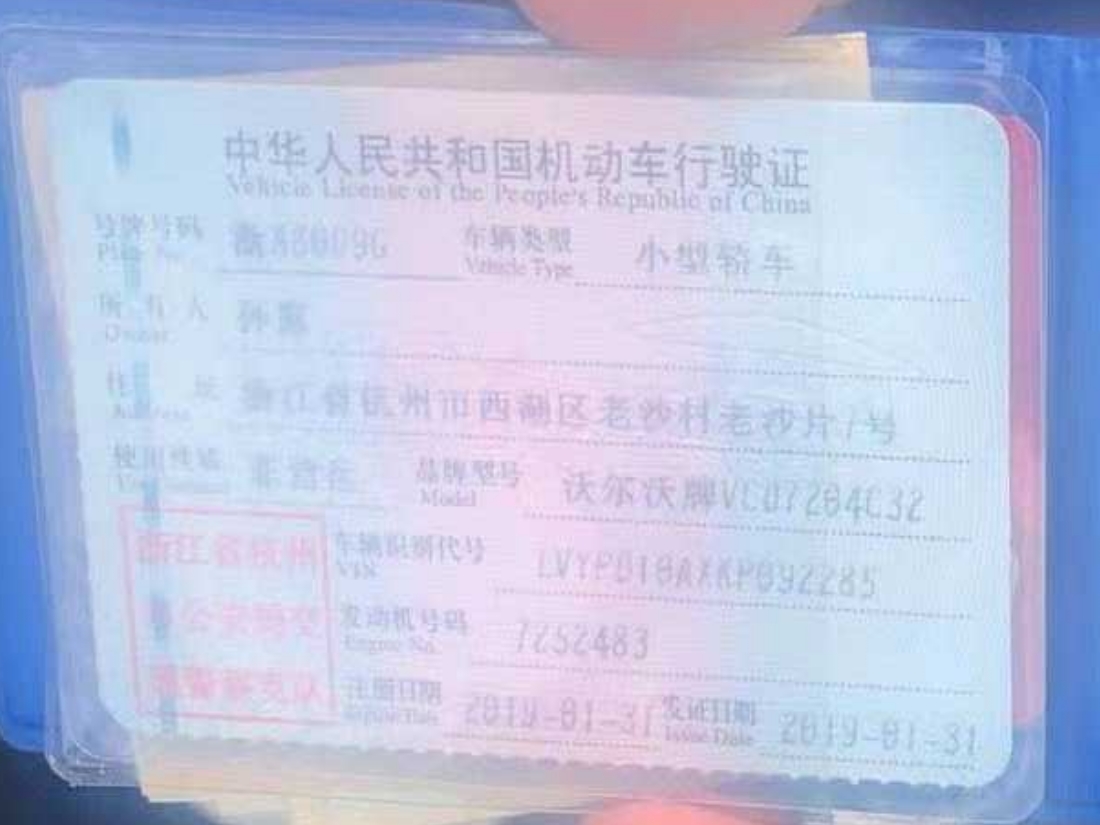 中华人民共和国机动车行驶证
Vehicle License of the People's Republic of China
号牌号码 车辆类型 小型轿车
Plate No. Vehicle Type
所有人 孙
Owner
住址 浙江省杭州市西湖区老沙村老沙片/号
Address
使用性质 非营运 品牌型号 沃尔沃牌VCD7204C32
Model
浙江省杭州 车辆识别代号
VIN
市公安局交 发动机号码 7252483
Engine No.
通警察支队 注册日期 2019-01-31 发证日期 2019-01-31
Register Date Issue Date